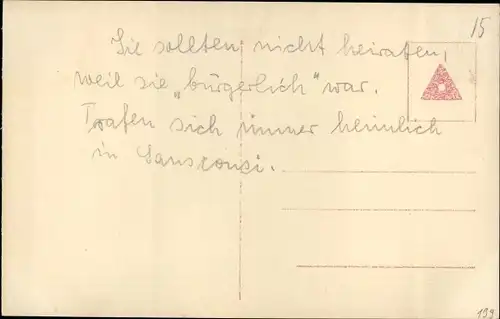 15
Sie sollten nicht heiraten,
weil sie „bürgerlich“ war.
Trafen sich immer heimlich
in Sanssouci.
199